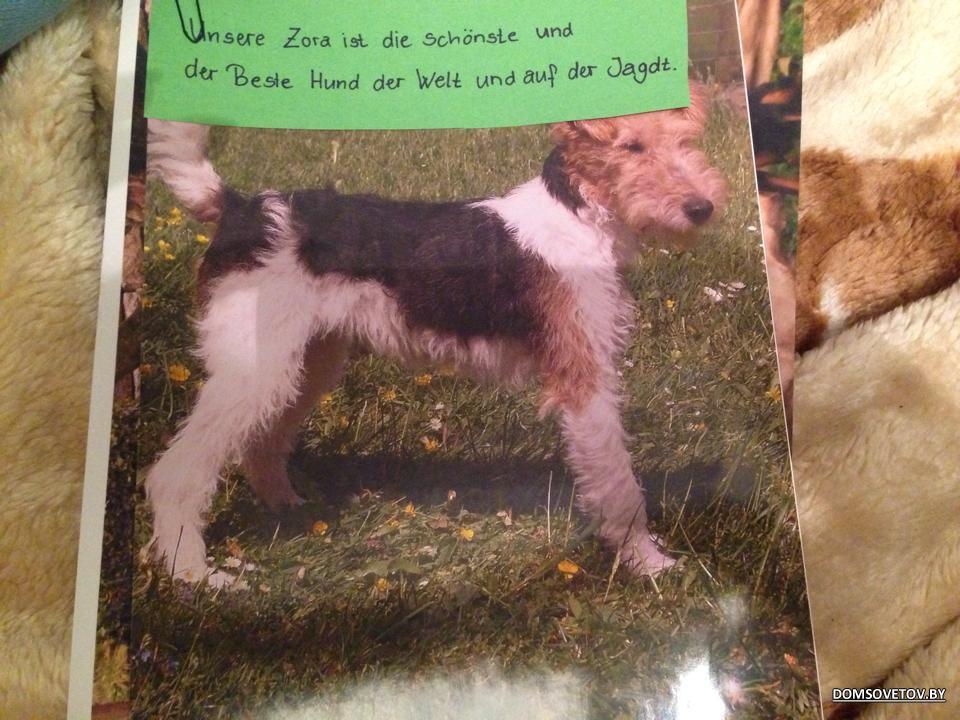 Unsere Zora ist die schönste und
der Beste Hund der Welt und auf der Jagdt.
DOMSOVETOV.BY